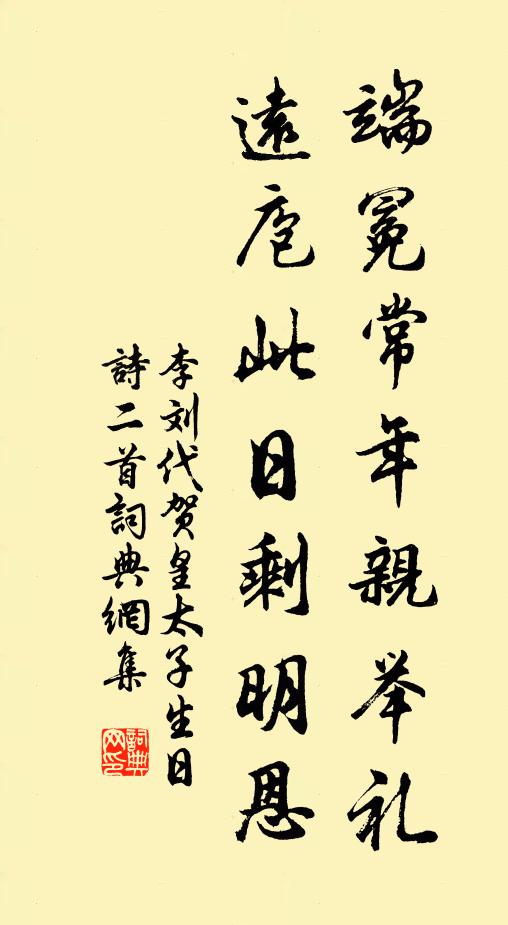 端冕常年親举礼
遠庖此日剩明恩
李刘代贺皇太子生日
詩二首詞典網集
詞典
网印